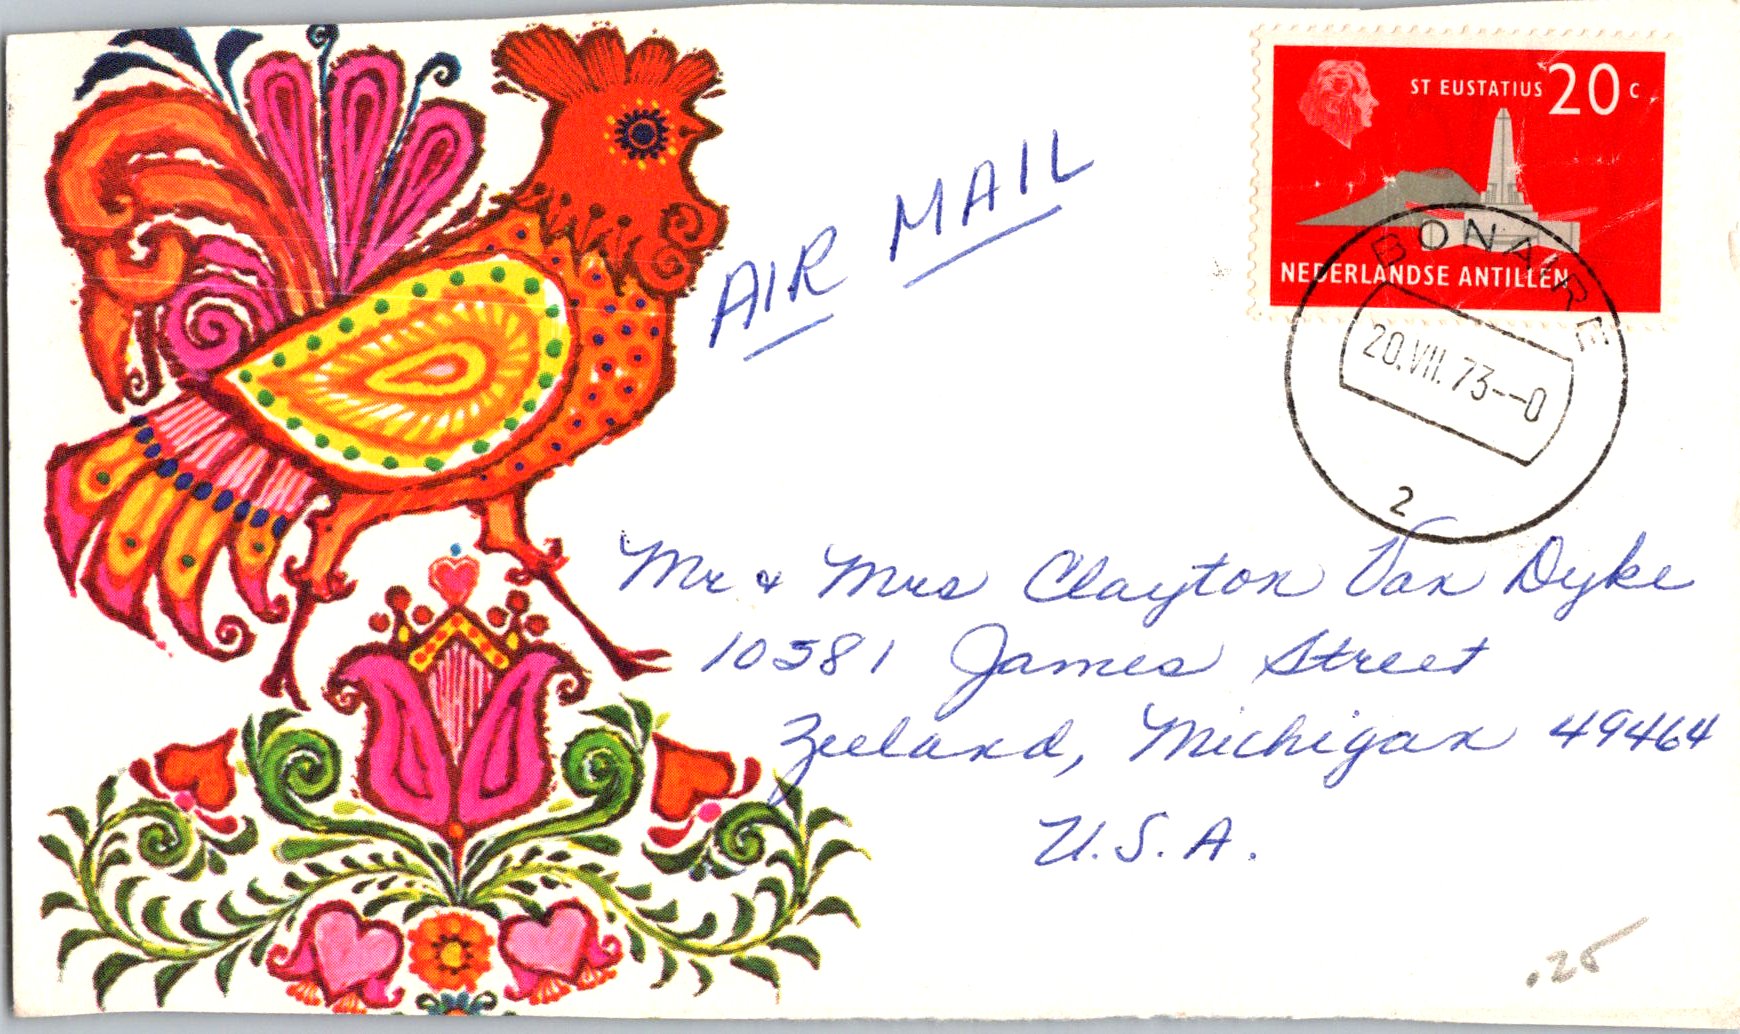 ST EUSTATIUS 20 c
NEDERLANDSE ANTILLEN
BONAIRE
20.VII.73--0
2
AIR MAIL
Mr & Mrs Clayton Van Dyke
10581 James Street
Zeeland, Michigan 49464
U.S.A.
.25